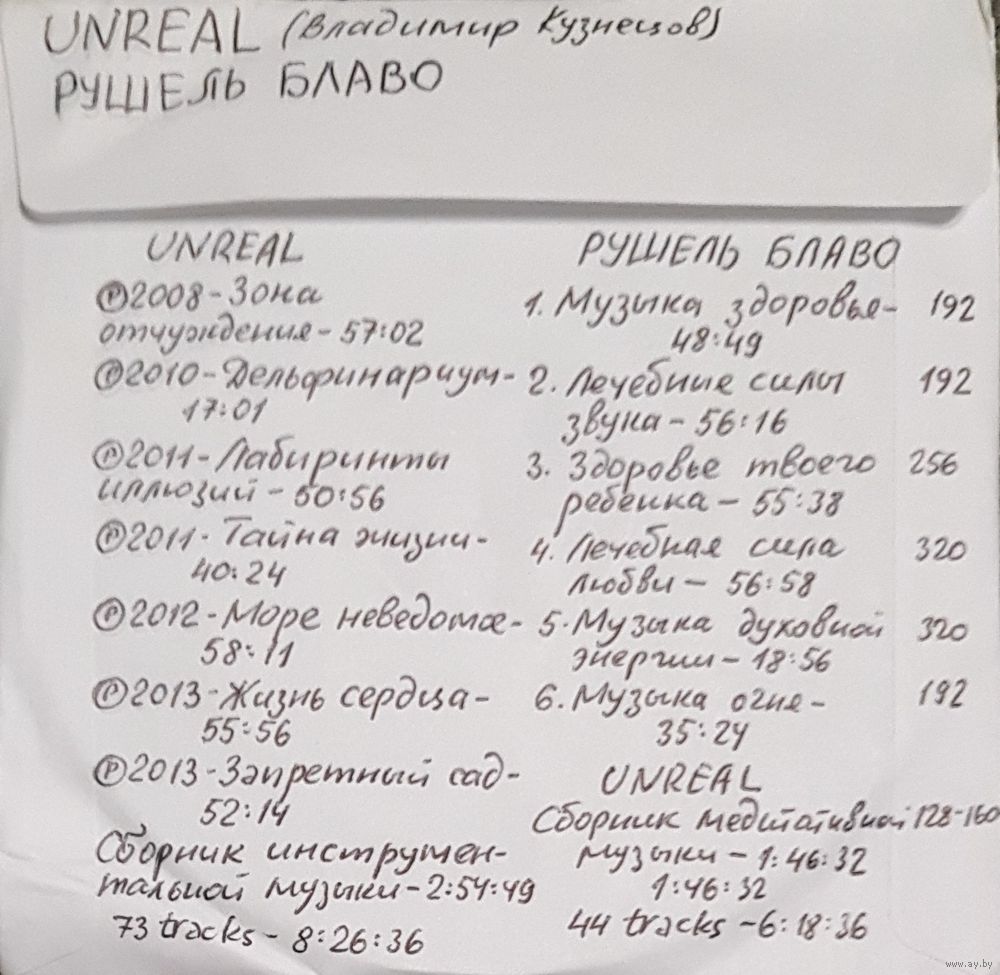 UNREAL (Владимир Кузнецов)
РУШЕЛЬ БЛАВО
UNREAL
℗2008-Зона
отчуждения-57:02
℗2010-Дельфинариум-
17:01
℗2011-Лабиринты
иллюзий-50:56
℗2011-Тайна жизни-
40:24
℗2012-Море неведомое-
58:11
℗2013-Жизнь сердца-
55:56
℗2013-Запретный сад-
52:14
Сборник инструмен-
тальной музыки-2:54:49
73 tracks-8:26:36
РУШЕЛЬ БЛАВО
1. Музыка здоровья- 192
48:49
2. Лечебные силы 192
звука-56:16
3. Здоровье твоего 256
ребенка-55:38
4. Лечебная сила 320
любви-56:58
5. Музыка духовной 320
энергии-18:56
6. Музыка огня- 192
35:24
UNREAL
Сборник медитативной 128-160
музыки-1:46:32
1:46:32
44 tracks-6:18:36
www.ay.by